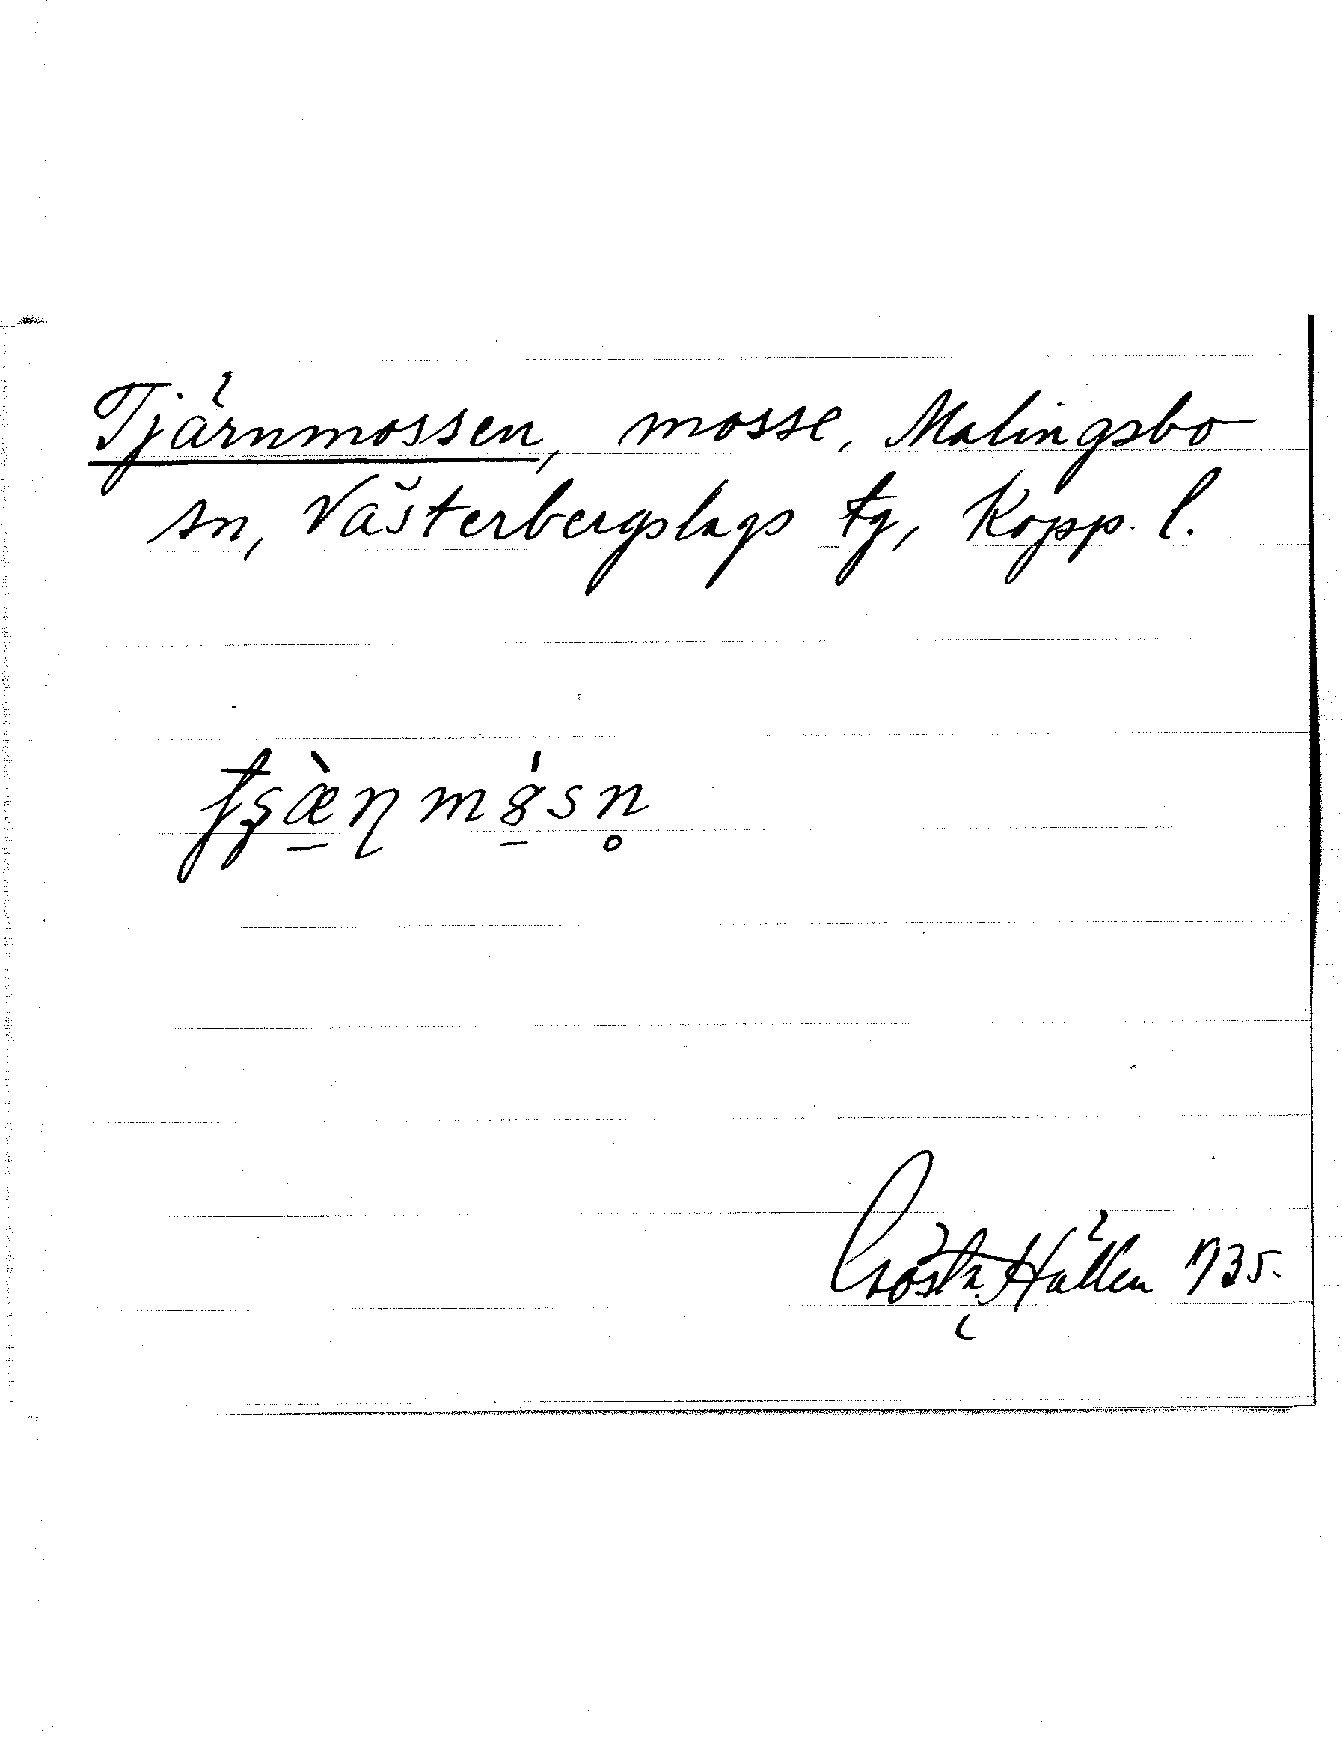 Tjärnmossen, mosse, Malingsbo
sn, Västerbergslags tg, Kopp. l.
Gösta Hallen 1935.